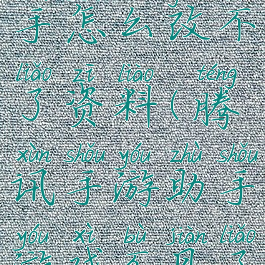 手怎么设不
liǎo zī liào téng
了资料(腾
xùn shǒu yóu zhù shǒu
讯手游助手
yóu xì bù liàn liǎo